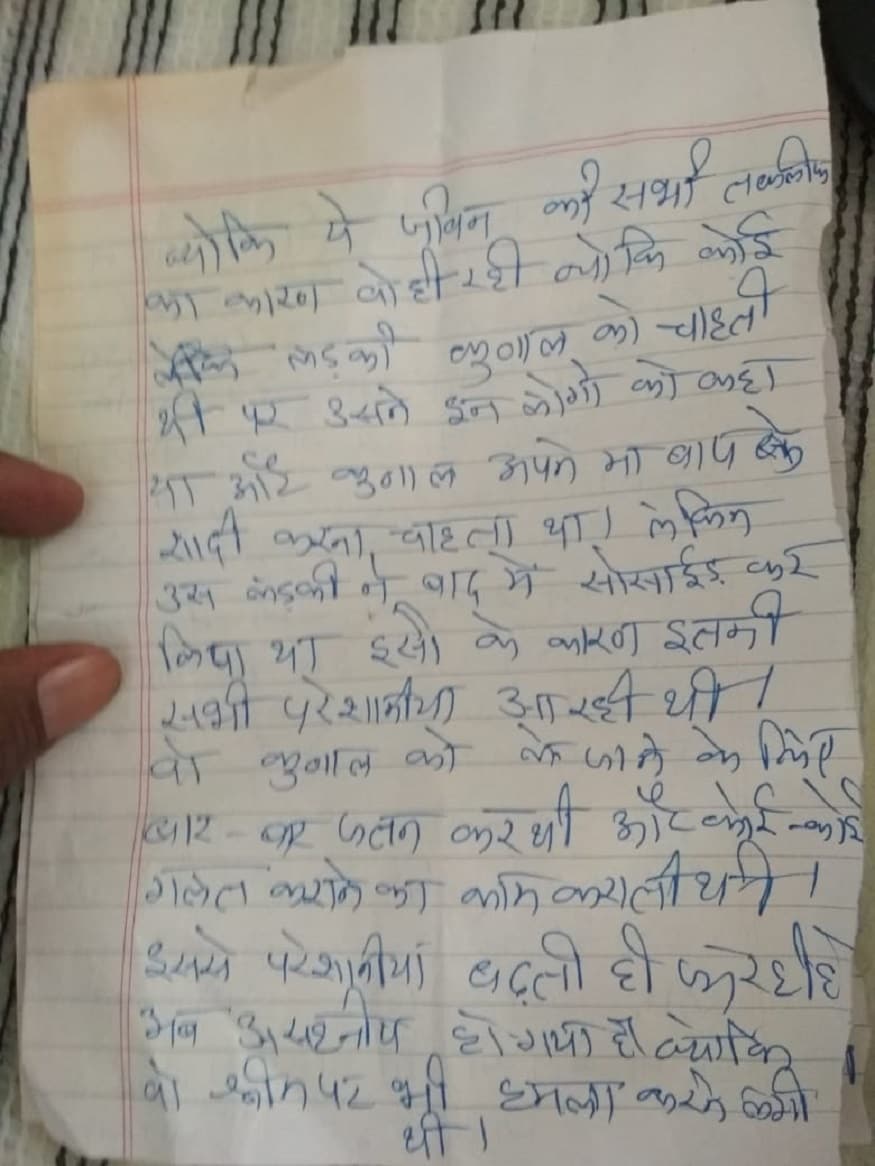 क्योकि ये जीवन की सभी तकलीफ
का कारन वो ही रही क्योकि कोई
लड़की कुनाल को चाहती
थी पर उसने इन लोगो को कहा
था और कुनाल अपने मा बाप के
शादी करना चाहता था। लेकिन
उस लड़की ने बाद में सोसाईड कर
लिया था इसी के कारन इतनी
सभी परेशानीया आ रही थी।
वो कुनाल को ले जाने के लिए
बार - बार जतन कर थी और कोई-कोई
गलत कराने का काम कराती थी।
इससे परेशानीयां बढ़ती ही जा रही है
अब असहनीय हो गया है क्योकि
वो भी हमला करने लगी
थी।